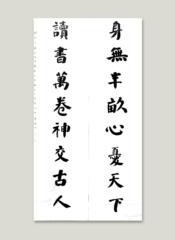 身無半畝心憂天下
讀書萬卷神交古人